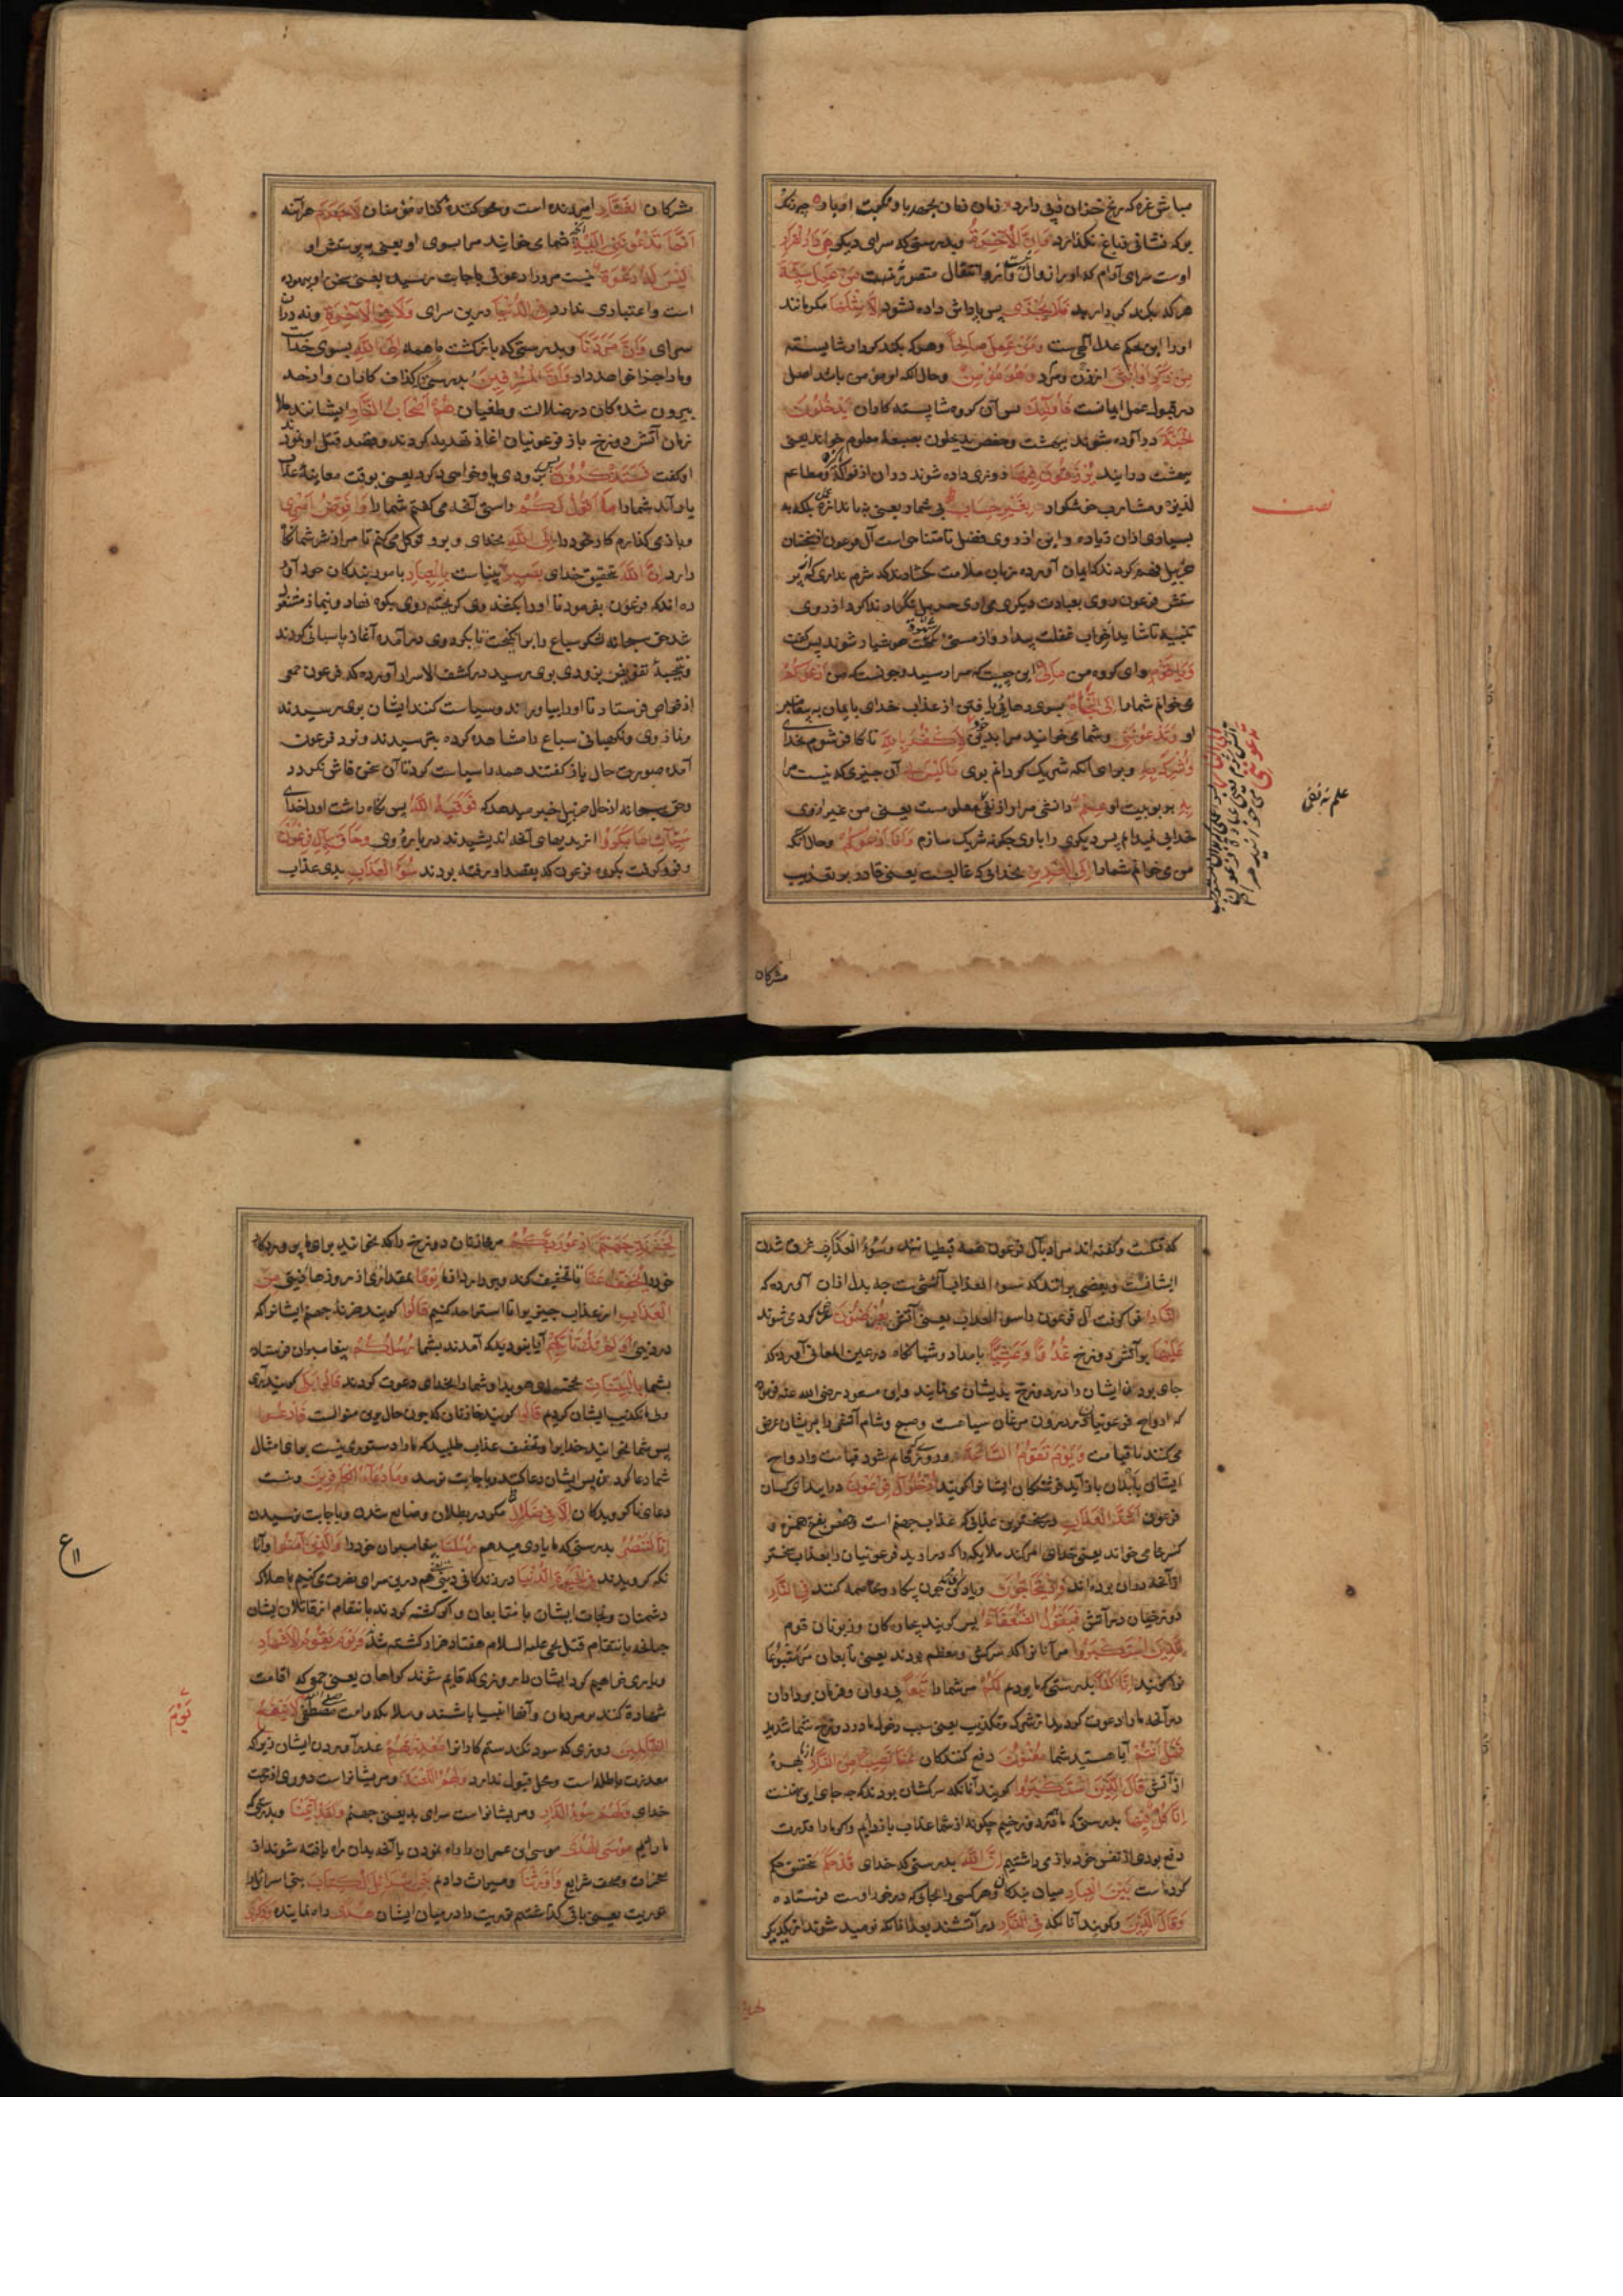 مباش غره که رنج خزان ز پی دارد
برگ نشانی بباغ نگذارد وَإِنَّ الْآخِرَةَ وبدرستی که سرای دیگر هِيَ دَارُ الْقَرَارِ
اوست سرای آرام که او را زوال نیست و انتقال متصور نیست مَنْ عَمِلَ سَيِّئَةً
هر که بکند کرداری بد فَلَا يُجْزَى پس پاداش داده نشود إِلَّا مِثْلَهَا مگر مانند
او را این حکم عدل الهیست وَمَنْ عَمِلَ صَالِحًا وهر که بکند کردار شایسته
مِنْ ذَكَرٍ أَوْ أُنْثَى از زن ومرد وَهُوَ مُؤْمِنٌ وحال آنکه او مؤمن باشد اصل
در قبول عمل ایمانست فَأُولَئِكَ پس آن گروه شایسته کاران يَدْخُلُونَ
الْجَنَّةَ درآورده شوند ببهشت وحفص یدخلون بصیغه معلوم خواند یعنی
ببهشت درایند يُرْزَقُونَ فِيهَا روزی داده شوند در آن از فواکه و مطاعم
لذیذه ومشارب خوشگوار بِغَيْرِ حِسَابٍ بی شمار یعنی نه باندازه عمل بلکه به
بسیاری از آن زیاده واین از روی فضل نامتناهی است آل فرعون از سخنان
حزبیل فهم کردند که ایمان آورده زبان ملامت گشادند که شرم نداری که از پر
ستش فرعون روی بعبادت دیگری می آری حزبیل دیگر باره ندا کرد از روی
تنبیه تا شاید از خواب غفلت بیدار و از مستی شهوت هوشیار شوند پس گفت
وَيَا قَوْمِ وای گروه من مَا لِي این چیست که مرا رسید وچونست که من أَدْعُوكُمْ
می خوانم شما را إِلَى النَّجَاةِ بسوی رهائی یافتن از عذاب خدای بایمان به پیغامبر
او وَتَدْعُونَنِي وشما می خوانید مرا بدین لِأَكْفُرَ بِاللَّهِ تا کافر شوم بخدای
وَأُشْرِكَ بِهِ وبرای آنکه شریک گردانم بوی مَا لَيْسَ لِي آن چیزی که نیست مرا
بِهِ بربوبیت او عِلْمٌ دانشی مراد از نفی معلومست یعنی من غیر از وی
خدایی نمیدانم پس دیگری را با وی چگونه شریک سازم وَأَنَا أَدْعُوكُمْ وحال آنکه
من می خوانم شما را إِلَى الْعَزِيزِ بخدائی که غالبست یعنی قادر بر تعذیب
نصف
علم نه نفی
مشرکان
مشرکان الْغَفَّارِ آمرزنده است ومحو کننده گناه مؤمنان لَا جَرَمَ هر آینه
أَنَّمَا تَدْعُونَنِي إِلَيْهِ آنچه شما می خوانید مرا بسوی او یعنی به پرستش او
لَيْسَ لَهُ دَعْوَةٌ نیست مر او را دعوتی باجابت رسیده یعنی سخن او بیهوده
است واعتباری ندارد فِي الدُّنْيَا درین سرای وَلَا فِي الْآخِرَةِ ونه در آن
سرای وَأَنَّ مَرَدَّنَا وبدرستی که بازگشت ما همه إِلَى اللَّهِ بسوی خداست
وما را جزا خواهد داد وَأَنَّ الْمُسْرِفِينَ بدرستی که گزاف کاران و از حد
بیرون شدگان در ضلالت وطغیان هُمْ أَصْحَابُ النَّارِ ایشانند ملا
زمان آتش دوزخ باز فرعونیان آغاز تهدید کردند وقصد قتل او نمودند
او گفت فَسَتَذْكُرُونَ پس زودی یاد خواهید کرد یعنی بوقت معاینه عذاب
یاد آرید شما را مَا أَقُولُ لَكُمْ راستی آنچه می گفتم شما را وَأُفَوِّضُ أَمْرِي
وباز می گذارم کار خود را إِلَى اللَّهِ بخدای و برو توکل می کنم تا مرا از شر شما نگاه
دارد إِنَّ اللَّهَ تحقیق خدای بَصِيرٌ بیناست بِالْعِبَادِ بامور بندگان خود آور
ده اند که فرعون بفرمود تا او را بکشند وی گریخته روی بکوه نهاد و بنماز مشغول
شد حق سبحانه لشکر سباع را برانگیخت تا بگرد وی درآمده آغاز پاسبانی کردند
ونتیجه تفویض بزودی بوی رسید در کشف الاسرار آورده که فرعون جمعی
از خواص فرستاد تا او را بیاورند وسیاست کنند ایشان بوی رسیدند
ونماز وی ونگهبانی سباع را مشاهده کرده بترسیدند ونزد فرعون
آمده صورت حال باز گفتند همه را سیاست کرد تا آن سخن فاش نگردد
وحق سبحانه از حال حزبیل خبر میدهد که فَوَقَاهُ اللَّهُ پس نگاه داشت او را خدای
سَيِّئَاتِ مَا مَكَرُوا از بدیهای آنچه اندیشیدند درباره وی وَحَاقَ بِآلِ فِرْعَوْنَ
وفرو گرفت بگروه فرعون که بقصد او رفته بودند سُوءُ الْعَذَابِ بدی عذاب
که قتلست وگفته اند مراد بآل فرعون همه قبطیانند وَسُوءُ الْعَذَابِ غرق شدن
ایشانست وبعضی برانند که سوء العذاب آتشی ست چه بدل از آن آورده که
النَّارُ فرو گرفت آل فرعون را سوء العذاب یعنی آتش يُعْرَضُونَ عرض کرده می شوند
عَلَيْهَا بر آتش دوزخ غُدُوًّا وَعَشِيًّا بامداد وشبانگاه در عین المعانی آورده که
جای بودن ایشان را در دوزخ بدیشان می نمایند وابن مسعود رضی الله عنه فرموده
که ارواح فرعونیان در درون مرغان سیاهست وصبح وشام آتش را بریشان عرض
می کنند تا قیامت وَيَوْمَ تَقُومُ السَّاعَةُ وروزی که قایم شود قیامت وارواح
ایشان بابدان باز آید فرشتگان ایشانرا گویند أَدْخِلُوا آلَ فِرْعَوْنَ درآیند ای کسان
فرعون أَشَدَّ الْعَذَابِ در سخت ترین عذابی که عذاب جهنم است وحفص بفتح همزه و
کسر خا می خواند یعنی حقتعالی امر کند ملایکه را که درآرید فرعونیان را بعذاب سختتر
از آنچه در آن بوده اند وَإِذْ يَتَحَاجُّونَ ویاد کن چون پیکار ومخاصمه کنند فِي النَّارِ
دوزخیان در آتش فَيَقُولُ الضُّعَفَاءُ پس گویند بیچارگان وزبونان قوم
لِلَّذِينَ اسْتَكْبَرُوا مر آنانرا که سرکش ومعظم بودند یعنی تابعان مر متبوعان
را گویند إِنَّا كُنَّا بدرستی که ما بودیم لَكُمْ مر شما را تَبَعًا پی روان وفرمان برداران
در آنچه ما را دعوت کردید از شرک وتکذیب یعنی سبب دخول ما در دوزخ شما شدید
فَهَلْ أَنْتُمْ آیا هستید شما مُغْنُونَ دفع کنندگان عَنَّا نَصِيبًا مِنَ النَّارِ از ما بهره
از آتش قَالَ الَّذِينَ اسْتَكْبَرُوا گویند آنانکه سرکشان بودند که چه جای این سخنست
إِنَّا كُلٌّ فِيهَا بدرستی که ما همه در دوزخیم چگونه از شما عذاب باز داریم واگر ما را قدرت
دفع بودی از نفس خود باز می داشتیم إِنَّ اللَّهَ بدرستی که خدای قَدْ حَكَمَ بتحقیق حکم
کرده است بَيْنَ الْعِبَادِ میان بندگان وهر کسی را بجای که درخور اوست فرستاده
وَقَالَ الَّذِينَ وگویند آنانکه فِي النَّارِ در آتشند بعد از آنکه نومید شوند از یکدیگر
لِخَزَنَةِ جَهَنَّمَ ادْعُوا رَبَّكُمْ مر خازنان دوزخ را که بخوانید برای ما پروردگار
خود را يُخَفِّفْ عَنَّا تا تخفیف کند وبردارد از ما يَوْمًا بمقداری از روزهای دنیی مِنَ
الْعَذَابِ از عذاب چیزی را تا استراحت کنیم قَالُوا گویند خزنه جهنم ایشانرا که
در دنیی أَوَلَمْ تَكُ تَأْتِيكُمْ آیا نبودید که آمدند بشما رُسُلُكُمْ پیغامبران فرستاده
بشما بِالْبَيِّنَاتِ بحجتهای هویدا وشما را بخدای دعوت کردند قَالُوا بَلَى گویند آری
وما تکذیب ایشان کردیم قَالُوا گویند خازنان که چون حال برین منوالست فَادْعُوا
پس شما بخوانید خدا را وتخفیف عذاب طلبید که ما را دستوری نیست برای امثال
شما دعا کردن پس ایشان دعا کنند وباجابت نرسد وَمَا دُعَاءُ الْكَافِرِينَ ونیست
دعای ناگرویدگان إِلَّا فِي ضَلَالٍ مگر در بطلان وضایع شدن وباجابت نرسیدن
إِنَّا لَنَنْصُرُ بدرستی که ما یاری میدهیم رُسُلَنَا پیغامبران خود را وَالَّذِينَ آمَنُوا وآنا
نکه گرویدند فِي الْحَيَاةِ الدُّنْيَا در زندگانی دنیی هم درین سرای نصرت می کنیم باهلاک
دشمنان ونجات ایشان با متابعان واگر کشته گردند بانتقام از قاتلان ایشان
چنانچه بانتقام قتل یحیی علیه السلام هفتاد هزار کشته شد وَيَوْمَ يَقُومُ الْأَشْهَادُ
ویاری خواهیم کرد ایشان را روزی که قایم شوند گواهان یعنی جمعی که اقامت
شهادة کنند بر مردمان وآنها انبیا باشند وملایکه وامت مصطفی لَا يَنْفَعُ
الظَّالِمِينَ روزی که سود نکند ستم کارانرا مَعْذِرَتُهُمْ عذر آوردن ایشان زیرا که
معذرت باطله است ومحل قبول ندارد وَلَهُمُ اللَّعْنَةُ ومریشانراست دوری از رحمت
خدای وَلَهُمْ سُوءُ الدَّارِ ومریشانراست سرای بد یعنی جهنم وَلَقَدْ آتَيْنَا وبدرستی که
ما دادیم مُوسَى الْهُدَى موسی ابن عمران را راه نمودن یا آنچه بدان راه یافته شوند از
معجزات وصحف شرایع وَأَوْرَثْنَا ومیراث دادیم بَنِي إِسْرَائِيلَ الْكِتَابَ بنی اسرائیل را
توریت یعنی باقی گذاشتیم توریت را در میان ایشان هُدًى راه نماینده وَذِكْرَى
ع
يَوْمَ